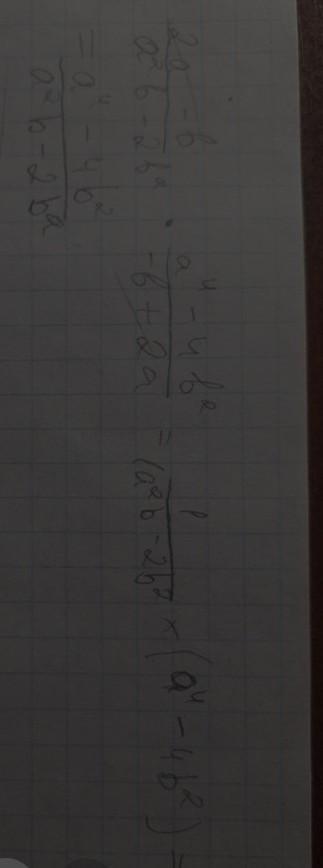 (2a - b)/(a²b - 2b²) · (a⁴ - 4b²)/(-b + 2a) = 1/(a²b - 2b²) × (a⁴ - 4b²) =
= (a⁴ - 4b²)/(a²b - 2b²)